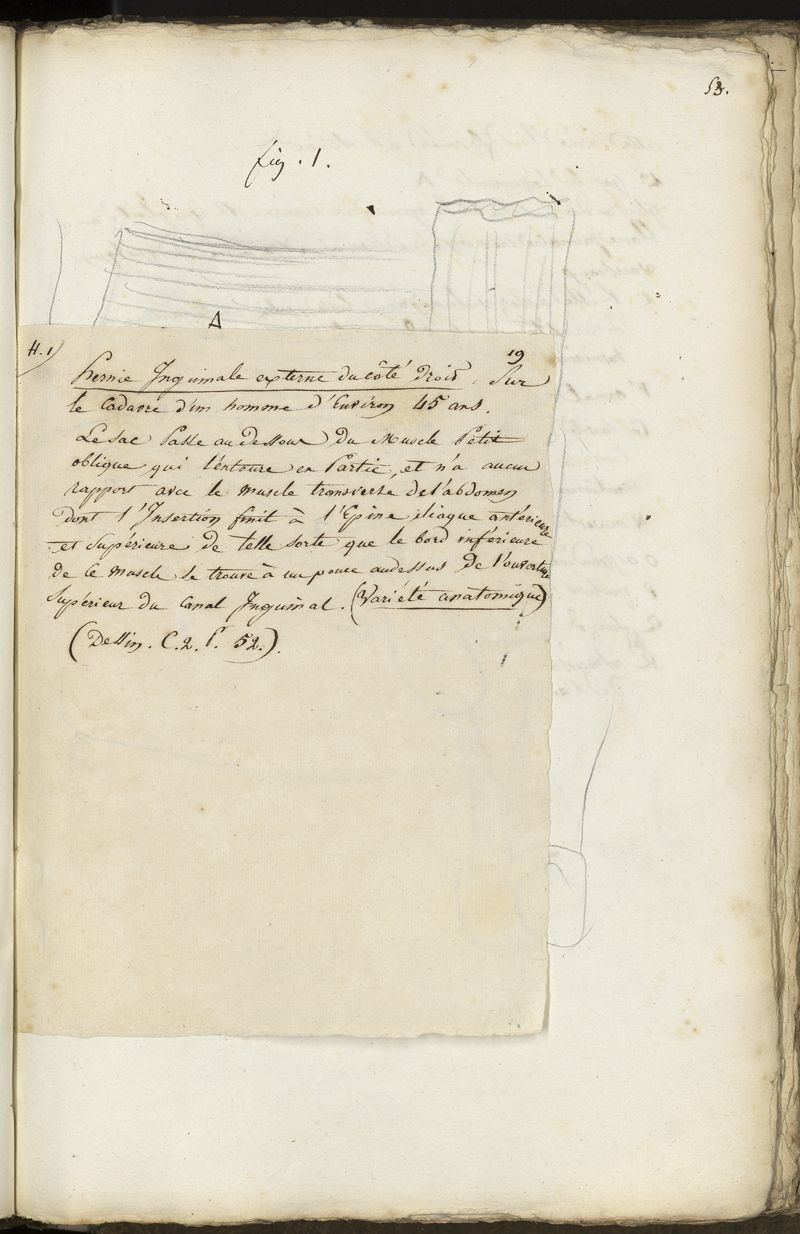 53.
fig. 1.
A
H. 1) 19
Hernie Inguinale externe du côté droit, Sur
le Cadavre d'un homme d'Environ 45 ans.
Le Sac Passe au dessous du Muscle Petit
oblique, qui l'éntoure en Partie, et n'a aucun
rapport avec le muscle transverse de l'abdomen
dont l'Insertion finit à l'Epine iliaque antérieure
et Supérieure de telle sorte que le bord inférieure
de ce muscle Se trouve à un pouce audessus De l'ouverture
Supérieur du Canal Inguinal. (Variété anatomique)
(Dessin. C. 2. P. 52.).